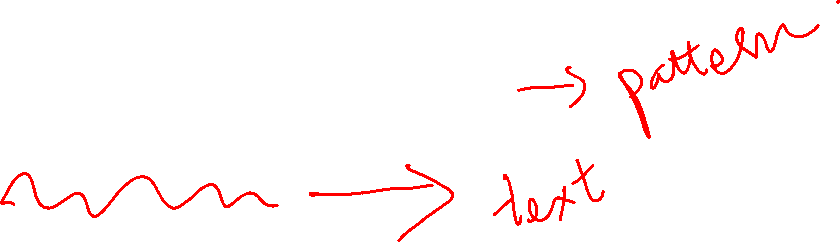 → pattern
→ text